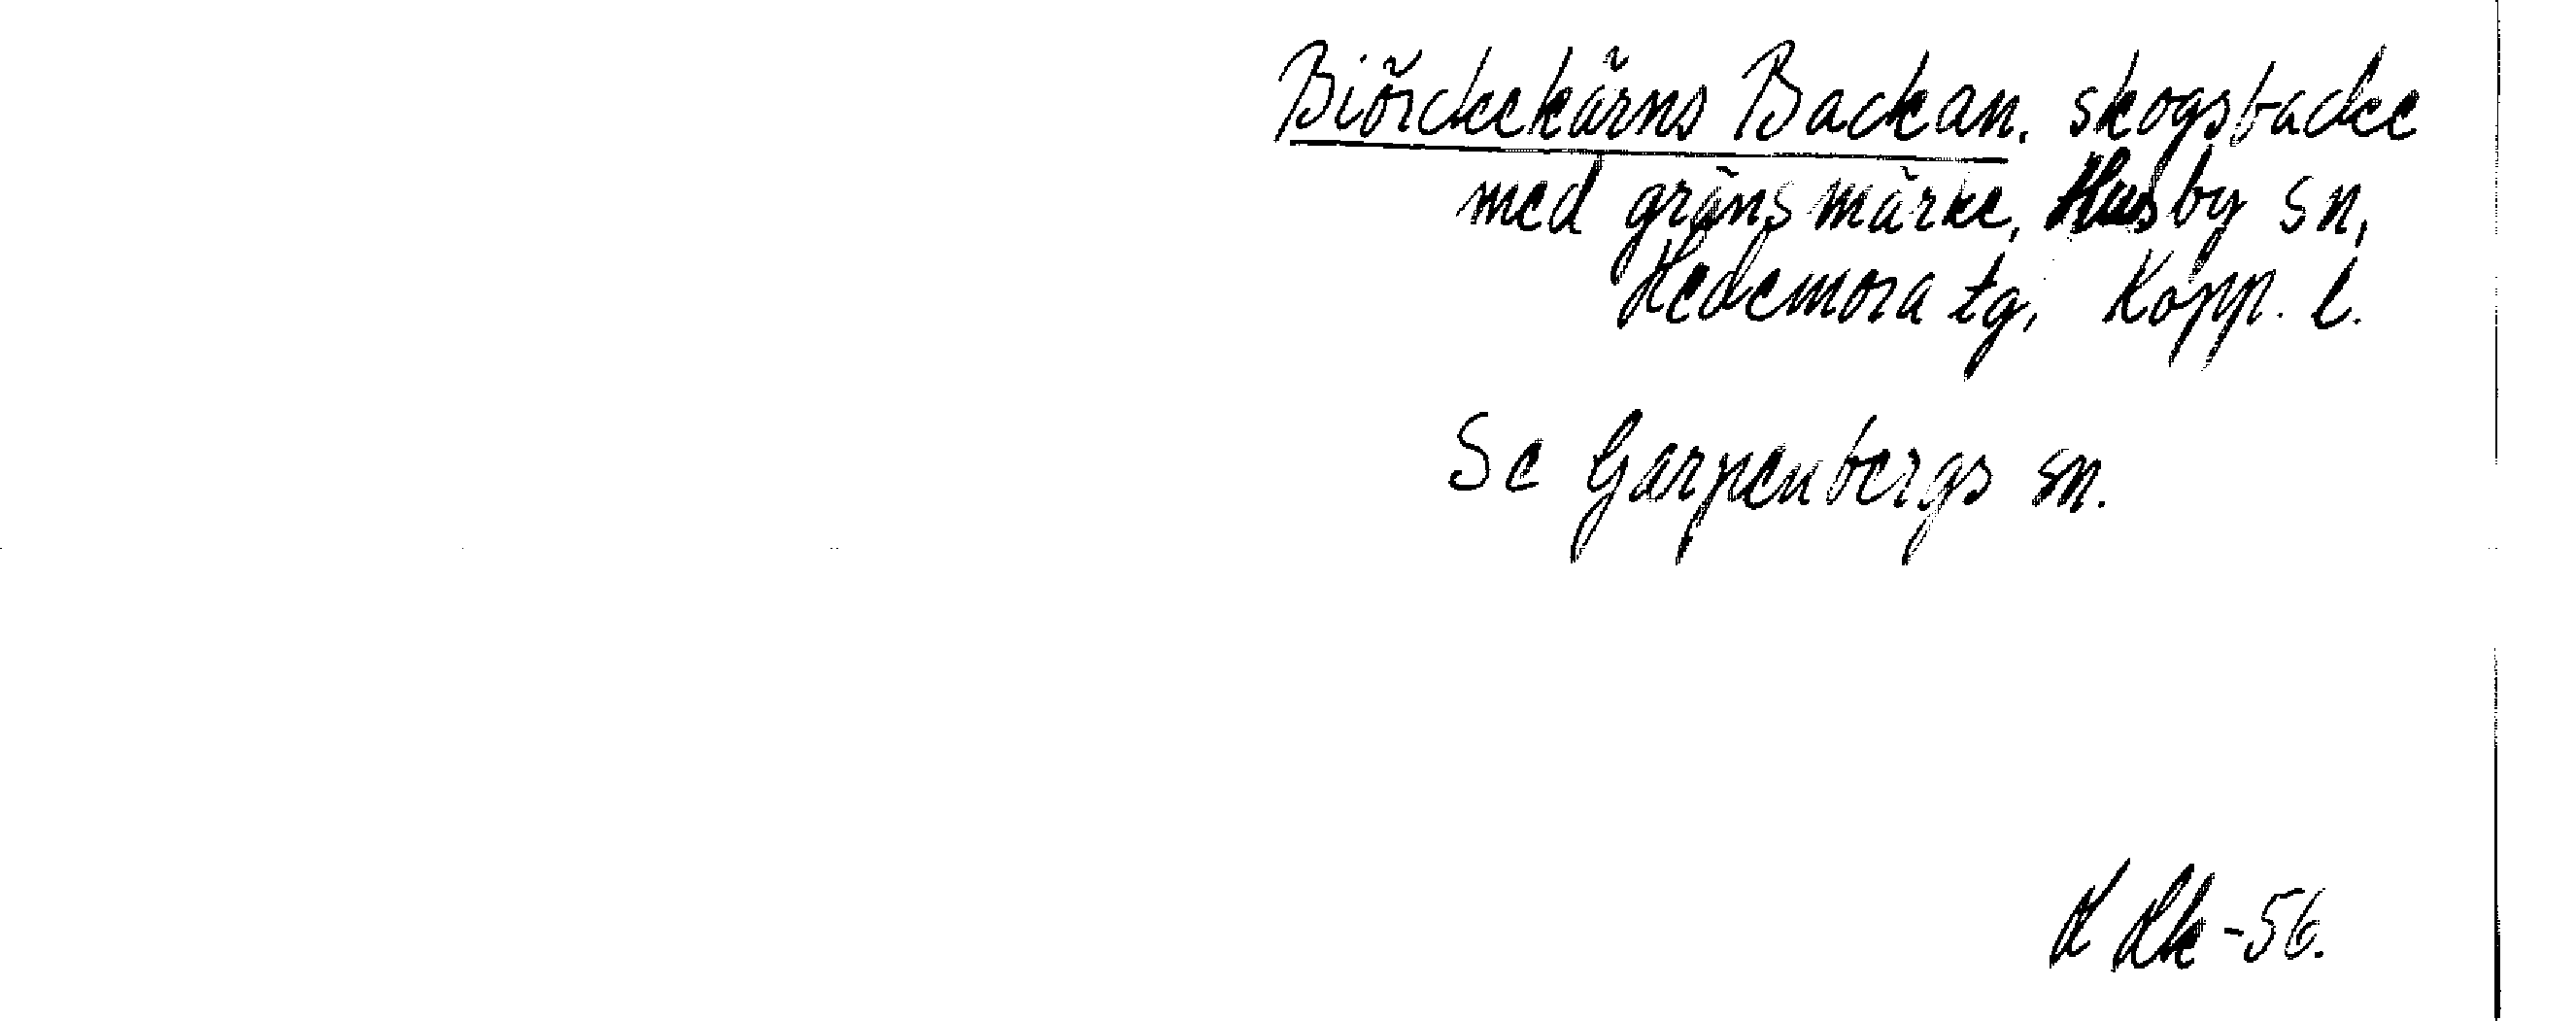 Biörckekärns Backan, skogsbacke
med gränsmärke, Husby sn,
Hedemora tg, Kopp. l.
Se Garpenbergs sn.
-56.